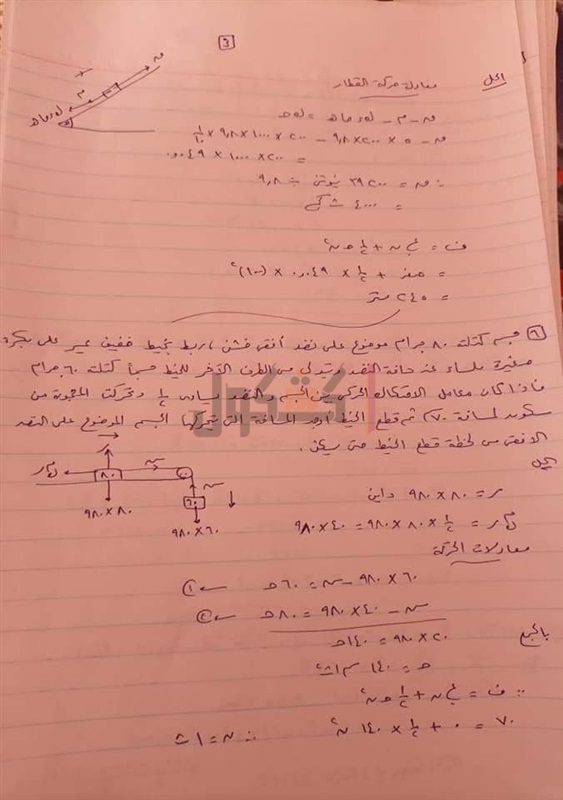 ٣
الحل
معادلة حركة القطار
ن - م - ك و حاهـ = ك حـ
ن - ٥ × ٢٠٠ × ٩,٨ - ٢٠٠ × ١٠٠٠ × ٩,٨ ×
= ٢٠٠ × ١٠٠٠ × ٠,٠٤٩
∴ ن = ٣٩٢٠٠ نيوتن ÷ ٩,٨
= ٤٠٠٠ ث كجم
ف = ع. ن + ½ حـ ن²
= صفر + ½ × ٠,٠٤٩ × (١٠٠)²
= ٢٤٥ متر
٦ جسم كتلته ٨٠ جرام موضوع على نضد أفقى خشن، ربط بخيط خفيف يمر على بكرة
صغيرة ملساء عند حافة النضد ويتدلى من الطرف الآخر للخيط جسماً كتلته ٦٠ جرام
فإذا كان معامل الاحتكاك الحركى بين الجسم والنضد يساوى ½ وتحركت المجموعة من
سكون لمسافة ٧٠ سم ثم قطع الخيط أوجد المسافة التى يتحركها الجسم الموضوع على النضد
الأفقى من لحظة قطع الخيط حتى يسكن.
الحل
٨٠
٦٠
٩٨٠×٨٠
٩٨٠×٦٠
ر = ٨٠ × ٩٨٠ داين
م ر = ½ × ٨٠ × ٩٨٠ = ٤٠ × ٩٨٠
معادلات الحركة
٦٠ × ٩٨٠ - ش = ٦٠ حـ ← ①
ش - ٤٠ × ٩٨٠ = ٨٠ حـ ← ②
بالجمع
٢٠ × ٩٨٠ = ١٤٠ حـ
حـ = ١٤٠ سم/ث²
∵ ف = ع. ن + ½ حـ ن²
٧٠ = ٠ + ½ × ١٤٠ ن² ∴ ن = ١ ث